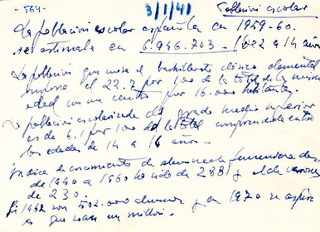 - 564 -
3/1/41
Población escolar
La población escolar española en 1959-60.
se estimaba en 6.966.703 - 22 a 14 años
La población que cursa el bachillerato clásico elemental
el 22.7 por 100 de la total de la misma
edad con un centro por 16.000 habitantes.
población escolarizada de grado medio superior
es de 6.1 por 100 de la total comprendida entre
las edades de 14 a 16 años.
Indice de crecimiento de alumnado femenino desde
1940 a 1960 ha sido de 288 y el de varones
de 230.
En 1962 son 502.000 alumnos y en 1970 se aspira
a que sean un millón.